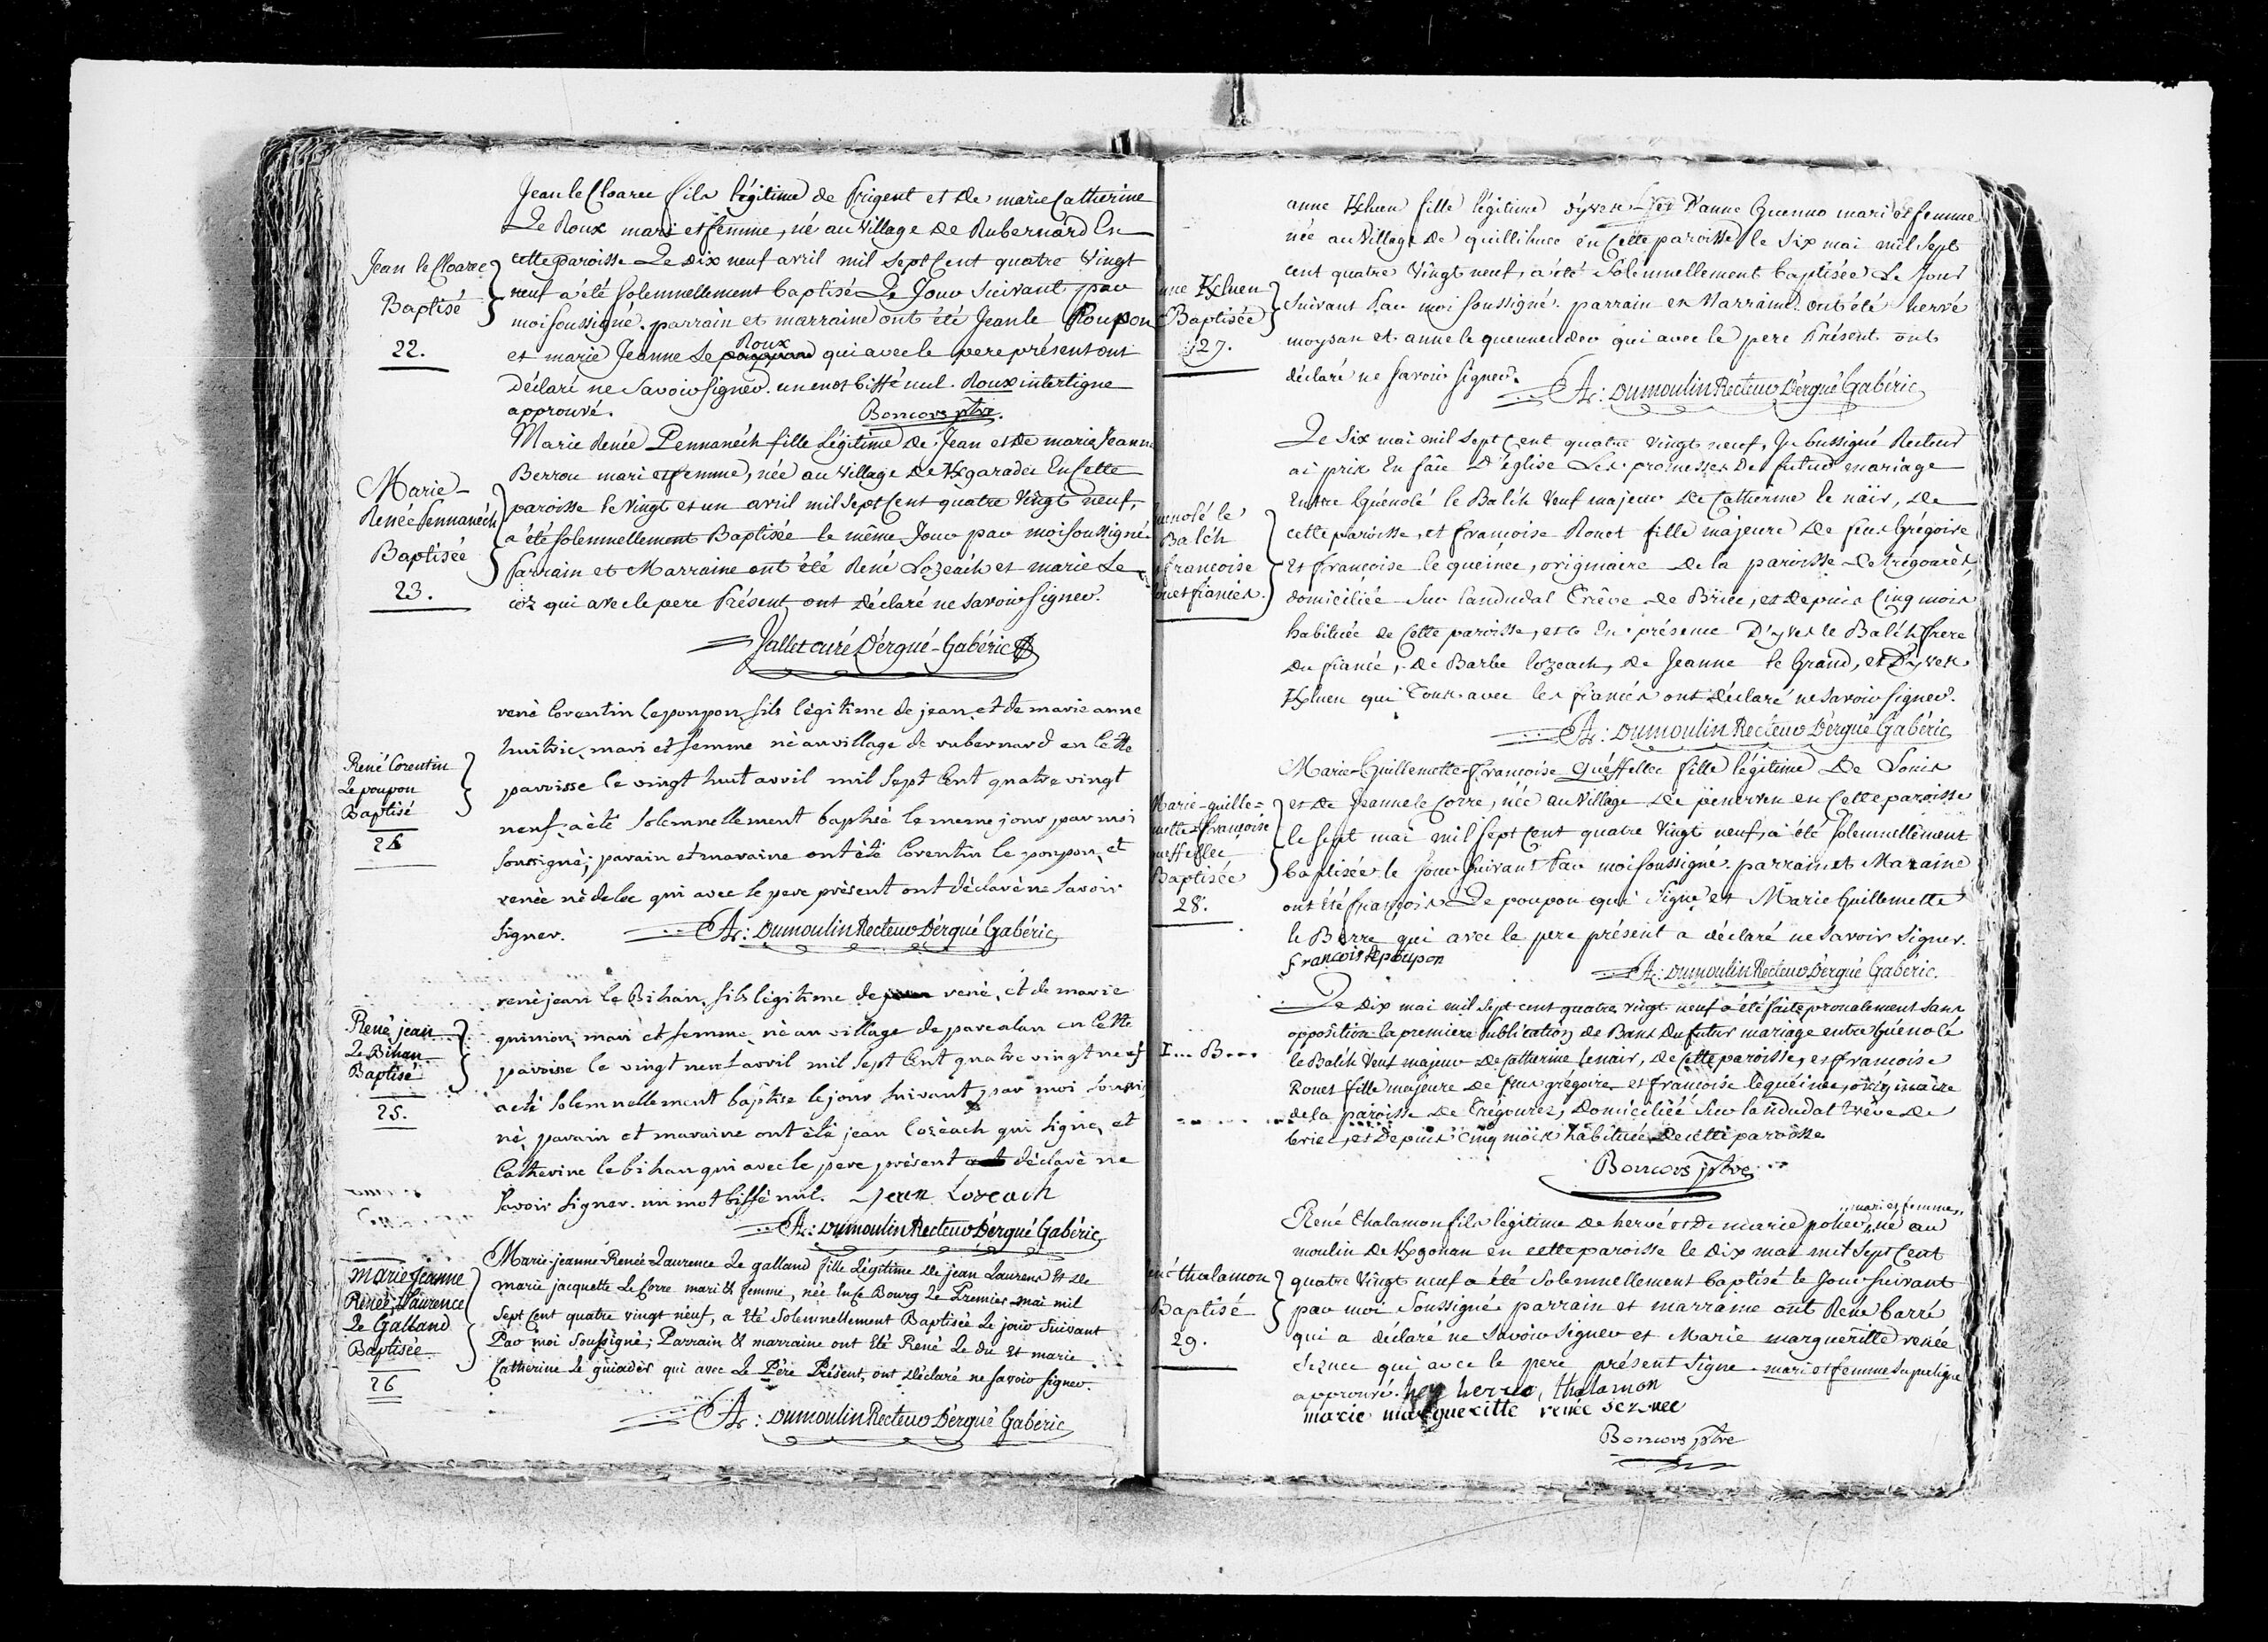 Jean le Cloarec
Baptisé
22.
Jean le Cloarec fils légitime de Prigent et de marie Catherine
Le Roux mari et femme, né au village de Rubernard En
cette paroisse Le Dix neuf avril mil Sept Cent quatre Vingt
neuf a été solemnellement baptisé Le Jour Suivant par
moi soussigné. parrain et marraine ont été Jean le Poupon
et marie Jeanne Le Roux qui avec le pere présent ont
Déclaré ne Savoir signer. un mot biffé nul. Roux interligne
approuvé. Boncors ptre.
Marie
Renée Pennanéch
Baptisée
23.
Marie Renée Pennanéch fille Légitime de Jean et De marie Jeanne
Berrou mari et femme, née au village de Kgaradec En Cette
paroisse le vingt et un avril mil Sept Cent quatre Vingt neuf,
a été solemnellement Baptisée le même Jour par moi soussigné
Parrain et Marraine ont été René Lozeách et marie Le
coz qui avec le pere Présent ont Déclaré ne savoir signer.
Jallet curé D'ergué-Gabéric
René Corentin
Le poupon
Baptisé
24
renè Corentin le poupon fils légitime de jean et de marie anne
huitric, mari et femme nè au village de rubernard en cette
paroisse le vingt huit avril mil sept Cent quatre vingt
neuf, a èté solemnellement baptisè le meme jour par moi
soussignè; parain et maraine ont èté Corentin le poupon, et
renèe nèdelec qui avec le pere prèsent ont dèclarè ne savoir
signer. A: Dumoulin Recteur D'ergué Gabéric
René jean
Le Bihan
Baptisé
25.
renè jean le Bihan, fils légitime de renè, et de marie
quinion, mari et femme nè au village de parcalan en Cette
paroisse le vingt neuf avril mil sept Cent quatre vingt neuf
a eté solemnellement baptise le jour suivant par moi soussi
nè, parain et maraine ont èté jean Lozèach qui signe, et
Catherine le bihan qui avec le pere, prèsent déclarè ne
savoir signer. un mot biffé nul. Jean Lozeach
A: Dumoulin Recteur D'ergué Gabéric
Marie Jeanne
Renée Laurence
Le Galland
Baptisée
26
Marie-jeanne-Renée-Laurence Le galland fille Légitime De jean Laurent Et de
marie jacquette Le Corre mari & femme, née En Ce Bourg Le Premier mai mil
Sept Cent quatre vingt neuf, a Eté Solemnellement Baptisée Le jour Suivant
Par moi Soussigné; Parrain & marraine ont Eté René Le du Et marie
Catherine Le guiader qui avec Le Père Présent, ont Déclaré ne savoir signer.
A: Dumoulin Recteur D'ergué Gabéric
nne Kluen
Baptisée
27.
anne Kluen fille légitime d'yves et D'anne Guenno mari et femme
née au Village De quillihuec en Cette paroisse le Six mai mil Sept
cent quatre Vingt neuf, a été Solemnellement baptisée Le Jour
Suivant Par moi soussigné. parrain et Marraine ont été hervé
moysan et anne le quenneudec qui avec le pere Présent ont
déclaré ne savoir signer.
A: Dumoulin Recteur D'ergué Gabéric
uénolé le
Baléh
françoise
ouet fiancés.
Le Six mai mil Sept Cent quatre vingt neuf, Je Sussigné Recteur
ai pris En face D'église Les promesses De futur mariage
Entre Guénolé le Baléh Veuf majeur de Catherine le náir, de
cette paroisse, et françoise Rouet fille majeure De feus Grégoire
et françoise le queinéc, originaire de la paroisse de trégourèz,
domiciliée sur landudal Trêve de Briec, et depuis Cinq mois
habituée de Cette paroisse, et En présence D'yves le Baléh frere
du fiancé, de Barbe lozeach, de Jeanne le Grand, et D'yves
Kluen qui Tous avec les fiancés ont déclaré ne savoir signer.
A: Dumoulin Recteur D'ergué Gabéric
Marie-guille=
mette-françoise
uéffellec
Baptisée
28.
Marie-Guillemette-françoise guéffellec fille légitime De Louis
et De Jeanne le Corre, née au Village de penerven en Cette paroisse
le Sept mai mil Sept Cent quatre Vingt neuf, a été Solemnellement
baptisée le Jour suivant Par moi soussigné. parrain et Maraine
ont été françois Le poupon qui Signe et Marie Guillemette
le Berre qui avec le pere présent a déclaré ne savoir signer.
François le poupon
A: Dumoulin Recteur D'ergué Gabéric.
I... B...
Le Dix mai mil Sept cent quatre vingt neuf a été faite pronalement Sans
opposition la premiere Publication de Bans Du futur mariage entre Guénolé
le Baléh Veuf majeur De Catherine lenair, de Cette paroisse, et françoise
Rouet fille majeure de feus grégoire et françoise le queinéc, originaire
de la paroisse De Trégourez, Domiciliée Sur landudal trêve De
briec, et Depuis Cinq mois habituée De cette paroisse
Boncors ptre
né thalamon
Baptisé
29.
mari et femme
René thalamon fils légitime de hervé et De marie poher, né au
moulin de Kgonan en cette paroisse le Dix mai mil Sept Cent
quatre Vingt neuf a été Solemnellement baptisé le Jour Suivant
par moi Soussigné parrain et marraine ont René barré
qui a déclaré ne savoir signer et Marie margueritte renée
Seznec qui avec le pere présent signe. mari et femme Surligne
approuvé. herve thalamon
marie margueritte renée Seznec
Boncors ptre